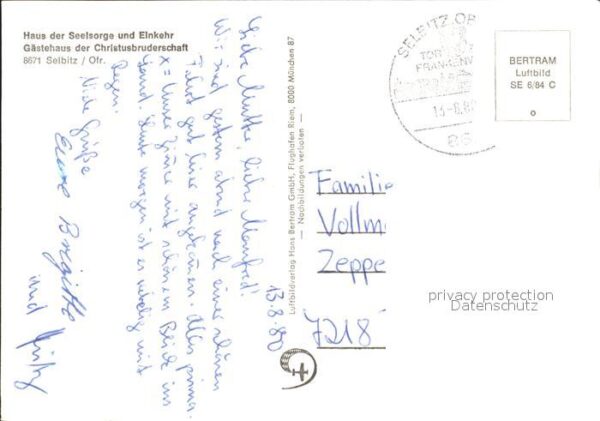 Haus der Seelsorge und Einkehr
Gästehaus der Christusbruderschaft
8671 Selbitz / Ofr.
13.8.80
Liebe Mutter, lieber Manfred!
Wir sind gestern abend nach einer schönen
Fahrt gut hier angekommen. Alles prima.
x = Unser Zimmer mit schönem Blick ins
Land. Heute morgen ist es neblig mit
Regen.
Viele Grüße
Eure Brigitte
und Fritz
Luftbildverlag Hans Bertram GmbH, Flughafen Riem, 8000 München 87
— Nachbildungen verboten —
SELBITZ, OB
TOR
FRANKENW
13-8.80
86
BERTRAM
Luftbild
SE 6/84 C
Familie
Vollm
Zeppe
7218
privacy protection
Datenschutz